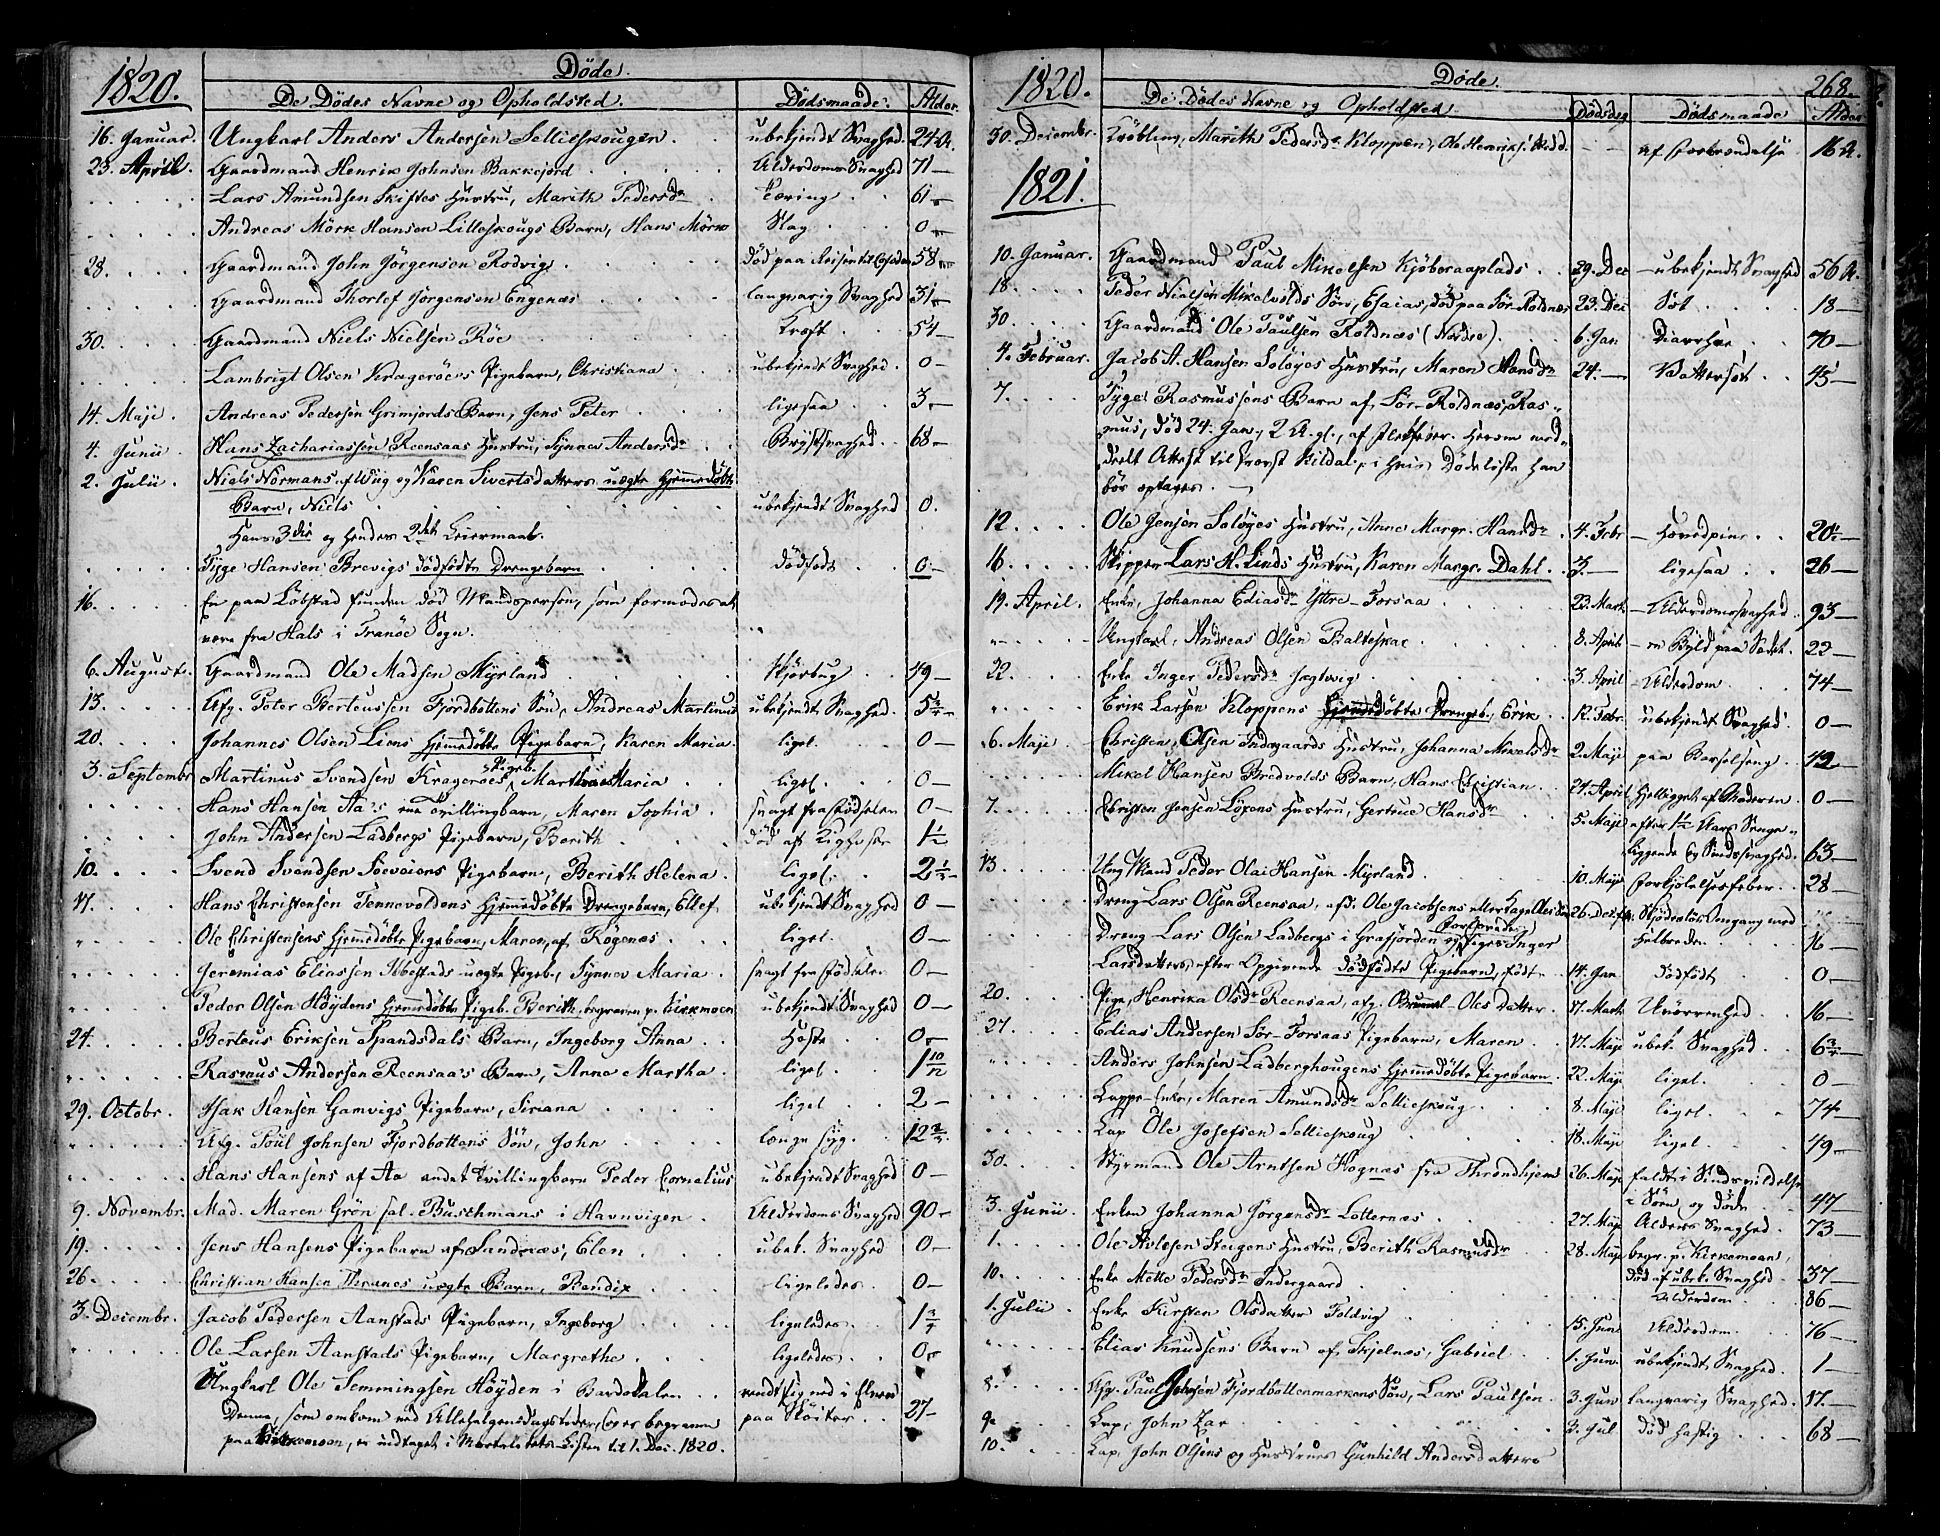 1820. Døde.
De Dødes Navne og Opholdsted. Dødsmaade. Alder.
16. Januar. Ungkarl Anders Andersen Sellieskougen. ubekjendt Svaghed. 24 A.
23. April. Gaardmand Henrik Johnsen Bakkejord Alderdoms Svaghed 71 —
Lars Amundsen Skiftes Hustru, Marith Pedersdr Tæring 61 —
Andreas Mørk Hansen Lilleskougs Barn, Hans Mørk Slag 0 —
28. Gaardmand John Jørgensen Rodvig død paa Reisen til 58 —
Gaardmand Thorlef Jørgensen Engenæs langvarig Svaghed 31 —
30. Gaardmand Niels Nielsen Røe Kræft 54 —
Lambrigt Olsen Kragerøes Pigebarn, Christiana ubekjendt Svaghed. 0 —
14. Maji. Andreas Pedersen Grimjords Barn, Jens Peter ligesaa 3 —
4. Junii. Hans Zachariassen Reensaas Hustru, Synnev Andersdr Brystsvaghed. 68 —
2. Julii. Niels Normans af Wiig og Karen Sivertsdatters uægte hjemmedøbte
Barn, Niels ubekjendt Svaghed 0.
Hans 3die og hendes 2det Leiermaal.
Tyge Hansen Brevigs dødfødte Drengebarn dødfødt 0 —
16. En paa Løbstad funden død Mandsperson, som formodes at
være fra Hals i Tranøe Sogn.
6. August. Gaardmand Ole Madsen Myrland Skjørbug 49 —
13. Afg. Peter Berteussen Fjordbottens Søn, Andreas Martinus ubekjendt Svaghed. 5 3/4 —
20. Johannes Olsen Liens hjemmedøbte Pigebarn, Karen Maria. ligel. 0 —
Pigeb.
3. Septembr. Martinus Svendsen Kragerøes Martha Maria ligel. 0 —
Hans Hansen Aa's ene Tvillingbarn, Maren Sophia svagt fra Fødselen 0 —
John Andersen Ladbergs Pigebarn, Berith død af Kighoste 1 1/2
10. Svend Svendsen Pigebarn, Berith Helena. ligel. 2 1/2 —
17. Hans Christensen Tennevoldens hjemmedøbte Drengebarn, Ellef ubekjendt Svaghed 0 —
Ole Christensens hjemmedøbte Pigebarn, Maren, af Røgenæs ligel. 0 —
Jeremias Eliassen Ibbestads uægte Pigeb., Synnev Maria svagt fra Fødselen 0 —
Peder Olsen Høydens hjemmedøbte Pigeb. Berith, begraven p. Kirkmoen ubekjendt Svaghed 0 —
24. Berteus Eriksen Spandsdals Barn, Ingeborg Anna Hoste 0 —
Rasmus Andersen Reensaa's Barn, Anne Martha. ligel. 1 10/12
29. Octobr. Isak Hansen Gamvigs Pigebarn, Siriana ligel 2 —
Afg. Poul Johnsen Fjordbottens Søn, John længe syg. 12 3/4
Hans Hansens af Aa andet Tvillingbarn Peder Cornelius ubekjendt Svaghed 0 —
9. Novembr. Mad. Maren Grøn sal. Buschmans i Havnvigen Alderdoms Svaghed 90 —
19. Jens Hansens Pigebarn af Sandnæs, Elen ubek. Svaghed 0 —
26. Christian Hansen Thranes uægte Barn, Bendix ligeledes 0 —
3. Decembr. Jacob Pedersen Aanstads Pigebarn, Ingeborg ligeledes 1 3/4
Ole Larsen Aanstads Pigebarn, Margrethe ligeledes 0 —
Ungkarl Ole Semmingsen Høyden i Bardodalen rendt sig ned i Elven
Denne, som omkom ved Allehelgensdagstider, og er begraven paa Skøiter 27 —
paa Kirkemoen, er indtaget i Mortalitets-Listen til 1. Dec. 1820.
1820. Døde. 268.
De Dødes Navne og Opholdsted. Dødsdag Dødsmaade Alder
30. Decembr. Krøbling, Marith Pedersdr Kloppen, af Forbrændelse 16 A.
1821.
10. Januar. Gaardmand Paul Mikelsen Kjøberaaplads 29. Dec — ubekjendt Svaghed 56 A.
18. Peder Nielsen Mikelvolds Søn, Esaias, død paa Sør-Rotdnæs 23. Dec Sot 18 —
30. Gaardmand Ole Paulsen Rotdnæs (Nordre). 6. Jan Diarrhee 70 —
4. Februar. Jacob A. Hansen Soløyes Hustru, Maren Hansdr 24. — Vattersot 45 —
7. Tyge Rasmussens Barn af Sør-Roldnæs, Ras-
mus, død 24. Jan., 2 A. gl., af
deelt Attest til Provst Kildal, i hvis Dødeliste han
bør optages. —
12. Ole Jensen Soløyes Hustru, Anne Margr. Hansdr 4. Febr — Hovedpine 20 1/2 —
16. Skipper Lars H. Linds Hustru, Karen Margr. Dahl. 3. — ligesaa 26 —
19. April. Enke, Johanna Eliasdr Yttre-Forsaa 23. Mart — Alderdomssvaghed. 93
Ungkarl, Andreas Olsen Balteskar 8. April — en Byld paa Sædet. 22 —
22. Enke Inger Pedersdr Jægtvig 3. April — Alderdom 74 —
Erik Larsen Kloppens hjemmedøbte Drengeb., Erik 12. Febr. ubekjendt Svaghed 0 —
6. Maji Christen Olsen Indregaards Hustru, Johanna Mikelsdr 2. Maji paa Barselseng 42 —
Mikel Hansen Bredvolds Barn, Hans Christian 24. April ihjelligget af Moderen 0 —
7. Christen Jensen Løxens Hustru, Gertrue Hansdr 5. Maji efter 1 1/2 Aars Senge-
liggende og Sindssvaghed. 63 —
13. Ung Mand Peder Olai Hansen Myrland 10. Maji Forkjølelsesfeber 28 —
Dreng Lars Olsen Reensaa, afd. Ole Jacobsens
Dreng Lars Olsen Ladbergs i Grasjorden og Piges Inger 16 —
Larsdatters, efter Opgivende dødfødte Pigebarn, født 14. Jan dødfødt 0 —
20. Pige, Henrika Olsdr Reensaa, afg. Olesdatter 17. Marts Uvorrenhed 16 —
27. Elias Andersen Sør-Forsaas Pigebarn, Maren 17. Maji ubek. Svaghed 6 3/4 —
Anders Johnsen Ladberghougens hjemmedøbte Pigebarn 22. Maji ligel. 0 —
Lappe-Enke, Maren Amundsdr Sellieskoug 8. Maji ligel 74 —
Lap Ole Josefsen Sellieskoug 18. Maji ligel. 49 —
30. Styrmand Ole Arntsen Hognæs fra Throndhjem 26. Maji faldt i Sindsvildelse
i Søen og døde 47 —
3. Junii. Enken Johanna Jørgensdr Lotternæs 27. Maji Alders Svaghed. 73 —
1. Ole Steigens Hustru, Berith Rasmusdr 28. Maji begr. p. Kirkemoen,
død af ubek. Svaghed 37 —
10. Enke Mette Pedersdr Indergaard Alderdom 86 —
1. Julii. Enke Kirsten Olsdatter Foldvig 15. Jun Alderdom 76 —
Elias Knudsens Barn af Skjelnæs, Gabriel 1. Jun. ubekjendt Svaghed. 1 —
8. Afg. Paul Johnsen Fjordbottenmarkens Søn, Lars Paulsen. 3. Jun langvarig Svaghed. 17. —
9. Lap, John Zar 3. Jul død hastig 68 —
10. Lap, John Olsens og Hustrues Gunhild Andersdatters